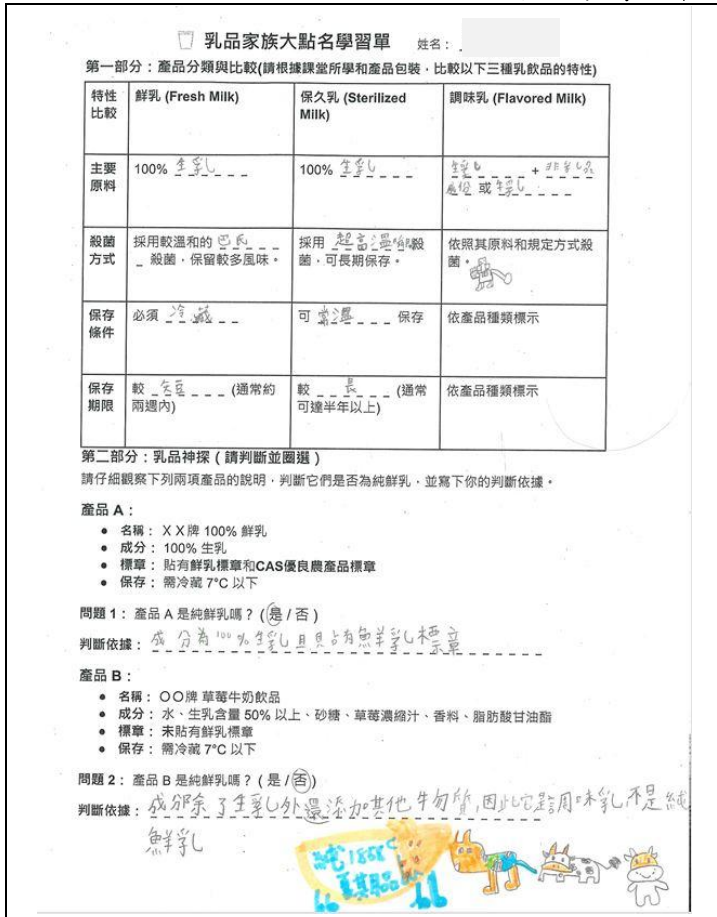 乳品家族大點名學習單 姓名：
第一部分：產品分類與比較(請根據課堂所學和產品包裝，比較以下三種乳飲品的特性)
特性比較 鮮乳 (Fresh Milk) 保久乳 (Sterilized Milk) 調味乳 (Flavored Milk)
主要原料 100% 生乳 100% 生乳 生乳 + 非乳品成份 或 生乳
殺菌方式 採用較溫和的 巴氏 殺菌，保留較多風味。 採用 超高溫瞬間殺菌，可長期保存。 依照其原料和規定方式殺菌。
保存條件 必須 冷藏 可 常溫 保存 依產品種類標示
保存期限 較 短 (通常約兩週內) 較 長 (通常可達半年以上) 依產品種類標示
第二部分：乳品神探 ( 請判斷並圈選 )
請仔細觀察下列兩項產品的說明，判斷它們是否為純鮮乳，並寫下你的判斷依據。
產品 A：
● 名稱： X X 牌 100% 鮮乳
● 成分： 100% 生乳
● 標章： 貼有鮮乳標章和CAS優良農產品標章
● 保存： 需冷藏 7°C 以下
問題 1： 產品 A 是純鮮乳嗎？ ( 是 / 否 )
判斷依據： 成分為100%生乳且貼有鮮乳標章
產品 B：
● 名稱： OO牌 草莓牛奶飲品
● 成分： 水、生乳含量 50% 以上、砂糖、草莓濃縮汁、香料、脂肪酸甘油酯
● 標章： 未貼有鮮乳標章
● 保存： 需冷藏 7°C 以下
問題 2： 產品 B 是純鮮乳嗎？ ( 是 / 否 )
判斷依據： 成分除了生乳外還添加其他物質,因此它是調味乳不是純
鮮乳